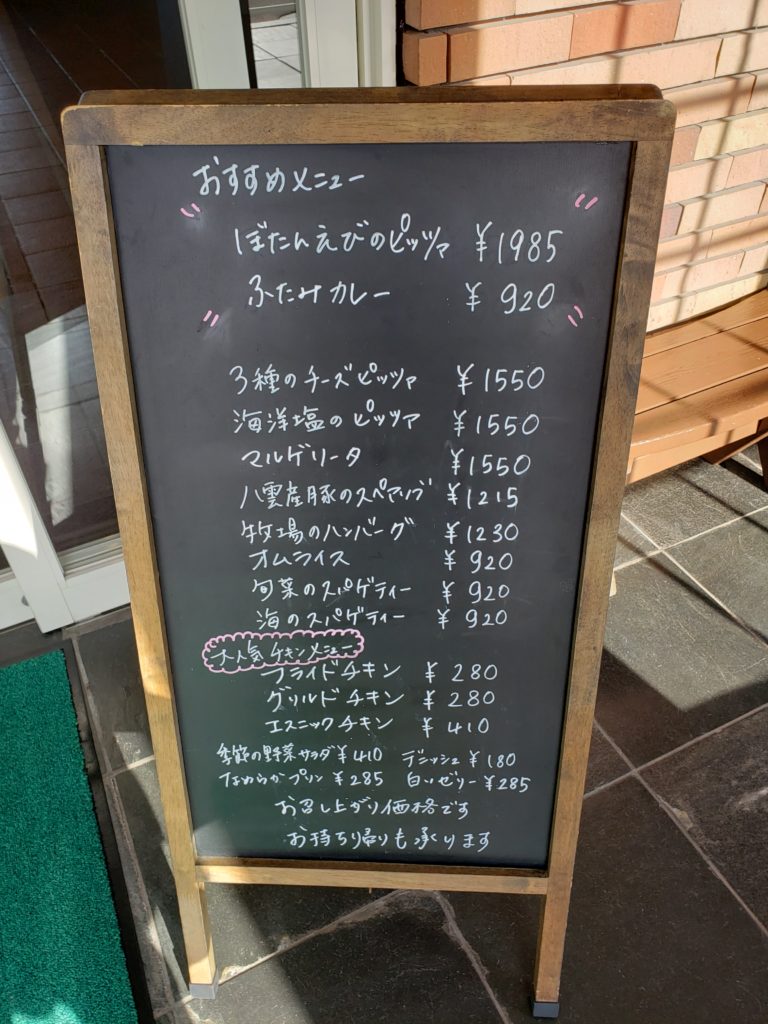 おすすめメニュー
ぼたんえびのピッツァ ¥1985
ふたみカレー ¥920
3種のチーズピッツァ ¥1550
海洋塩のピッツァ ¥1550
マルゲリータ ¥1550
八雲産豚のスペアリブ ¥1215
牧場のハンバーグ ¥1230
オムライス ¥920
旬菜のスパゲティー ¥920
海のスパゲティー ¥920
大人気チキンメニュー
フライドチキン ¥280
グリルドチキン ¥280
エスニックチキン ¥410
季節の野菜サラダ ¥410 デニッシュ ¥180
なめらかプリン ¥285 白いゼリー ¥285
お召し上がり価格です
お持ち帰りも承ります